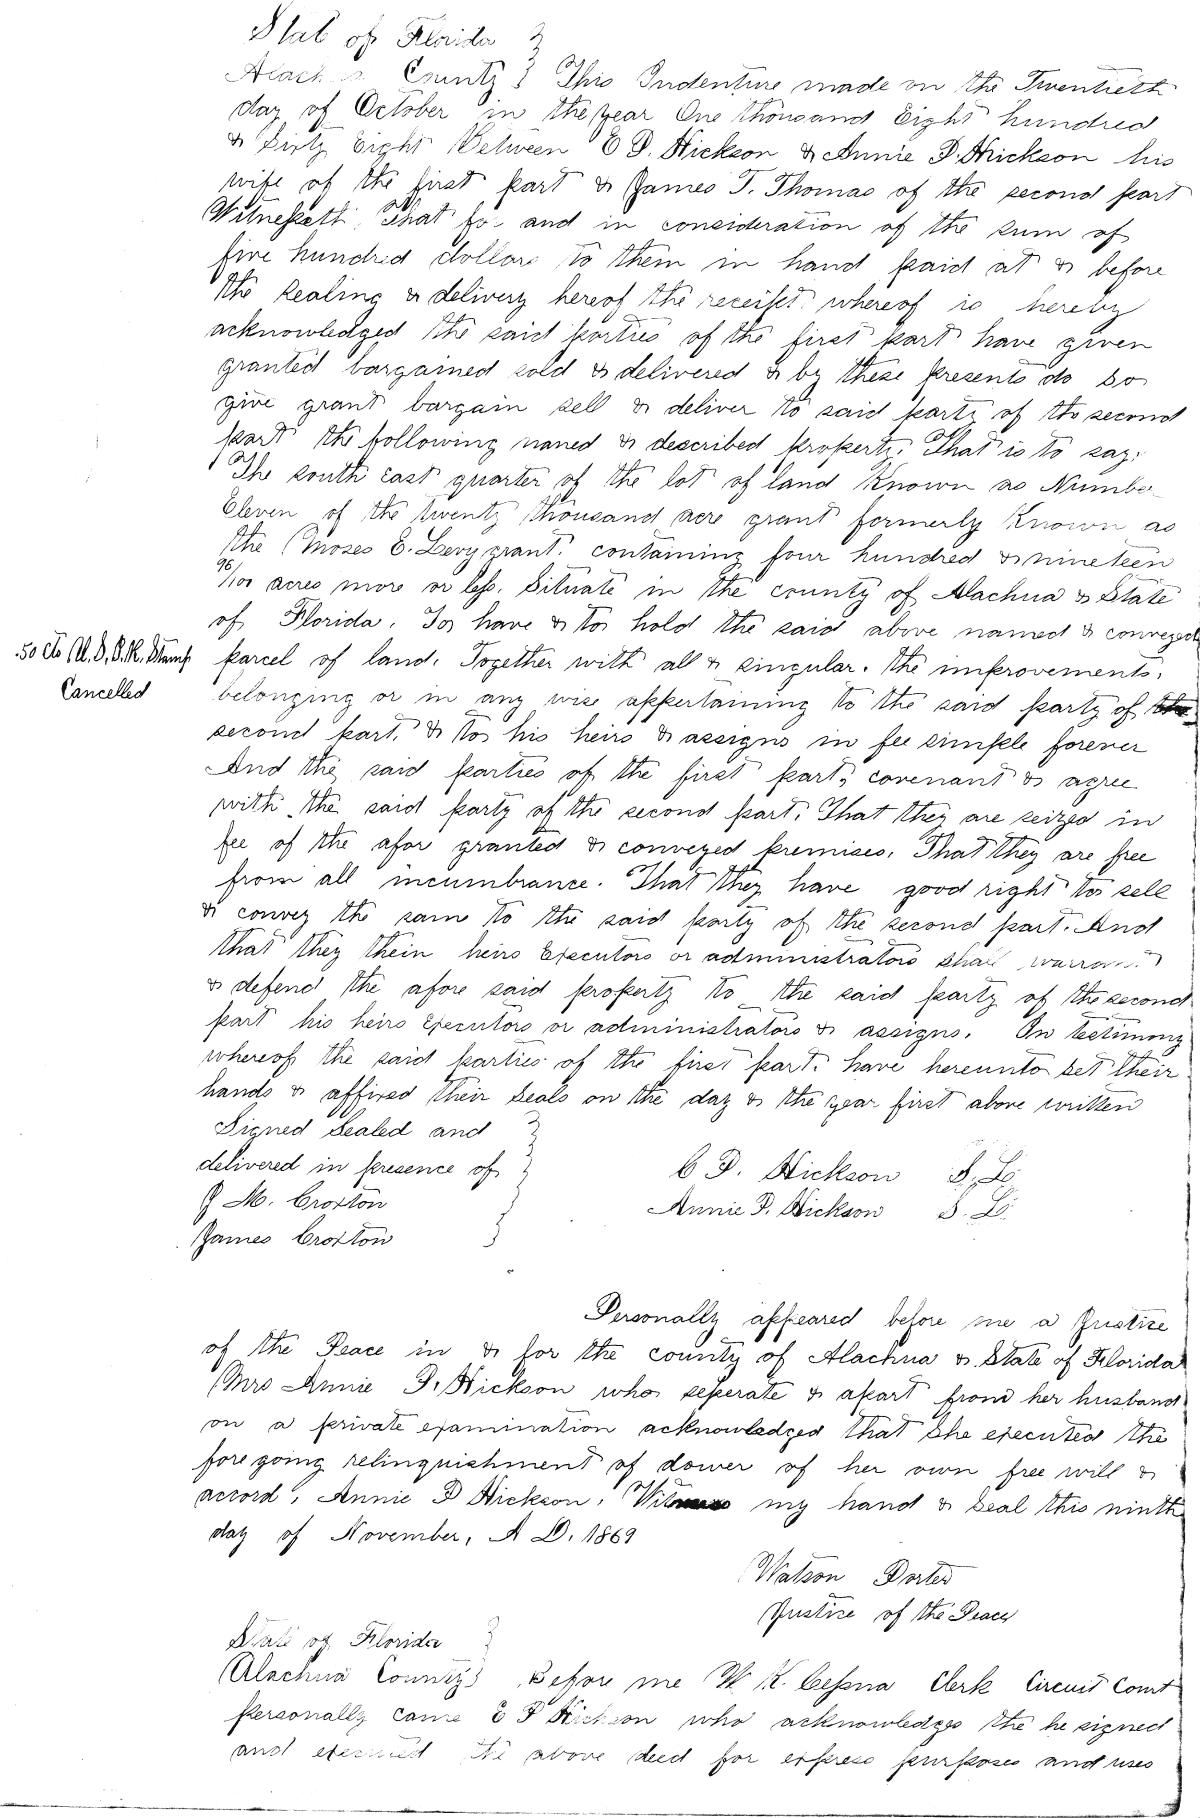 State of Florida }
Alachua County } This Indenture made on the Twentieth
day of October in the year One thousand Eight hundred
& Sixty Eight Between E D. Hickson & Annie D. Hickson his
wife of the first part & James T. Thomas of the second part
Witnesseth, That for and in consideration of the sum of
five hundred dollars to them in hand paid at & before
the sealing & delivery hereof the receipt whereof is hereby
acknowledged the said parties of the first part have given
granted bargained sold & delivered & by these presents do so
give grant bargain sell & deliver to said party of the second
part the following named & described property. That is to say:
The south east quarter of the lot of land Known as Number
Eleven of the twenty thousand acre grant formerly Known as
the Moses E. Levy grant. containing four hundred & nineteen
96/100 acres more or less. Situate in the county of Alachua & State
of Florida. To have & to hold the said above named & conveyed
.50 Cts U.S.I.R. Stamp
Cancelled
parcel of land. Together with all & singular. the improvements.
belonging or in any wise appertaining to the said party of the
second part. & to his heirs & assigns in fee simple forever
And the said parties of the first part, covenant & agree
with the said party of the second part. That they are seized in
fee of the afor granted & conveyed premises. That they are free
from all incumbrance. That they have good right to sell
& convey the same to the said party of the second part. And
that they thein heirs Executors or administrators shall warrant
& defend the afore said property to the said party of the second
part his heirs Executors or administrators & assigns. In testimony
whereof the said parties of the first part. have hereunto set their
hands & affixed their Seals on the day & the year first above written
Signed Sealed and }
delivered in presence of }
J M. Croxton
James Croxton
E D. Hickson L. S.
Annie D. Hickson L. S.
Personally appeared before me a Justice
of the Peace in & for the county of Alachua & State of Florida
Mrs Annie D. Hickson who seperate & apart from her husband
on a private examination acknowledged that She executed the
fore going relinquishment of dower of her own free will &
accord, Annie D Hickson. Witness my hand & Seal this ninth
day of November, A D. 1869
Watson Porter
Justice of the Peace
State of Florida }
Alachua County } Before me W. K. Cessna Clerk Circuit Court
personally came E D Hickson who acknowledges the he signed
and executed the above deed for express purposes and uses